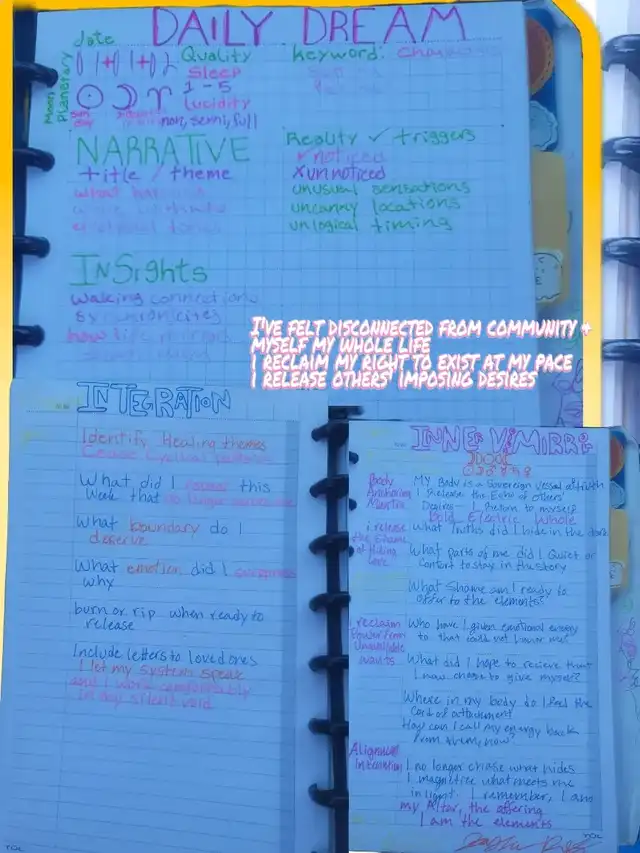 DAILY DREAM
date
Quality
Sleep
1-5
Lucidity
non, semi, full
Keyword:
Moon
Planetary
NARRATIVE
title / theme
what
Reality ✓ triggers
✓ noticed
x unnoticed
unusual sensations
uncanny locations
unlogical timing
INSIGHTS
waking connections
I'VE FELT DISCONNECTED FROM COMMUNITY &
MYSELF MY WHOLE LIFE
I RECLAIM MY RIGHT TO EXIST AT MY PACE
I RELEASE OTHERS' IMPOSING DESIRES
INTEGRATION
Identify Healing themes
What did I this
week that no longer
What boundary do I
deserve
What emotion did I suppress
why
burn or rip when ready to
release
Include letters to loved ones
I let my system speak
and I work comfortably
in my silent void
INNER
Body
Anchoring
Mantra
My Body is a Sovereign Vessel of truth
I Release the Echo of others'
Desires I Return to myself
Bold Electric Whole
i release
the Shame
of Hiding
Love
What truths did I hide in the dark
What parts of me did I Quiet or
contort to stay in the story
What Shame am I ready to
offer to the elements?
i reclaim
Power from
Unavailable
wants
Who have I given emotional energy
to that could not honor me?
What did I hope to recieve that
I now choose to give myself?
Where in my body do I feel the
Cord of attachment
How can I call my energy back
from them, now?
Alignment
Integration
I no longer chase what hides
I magnetize what meets me
in light. I remember, I am
my Altar, the offering
I am the elements